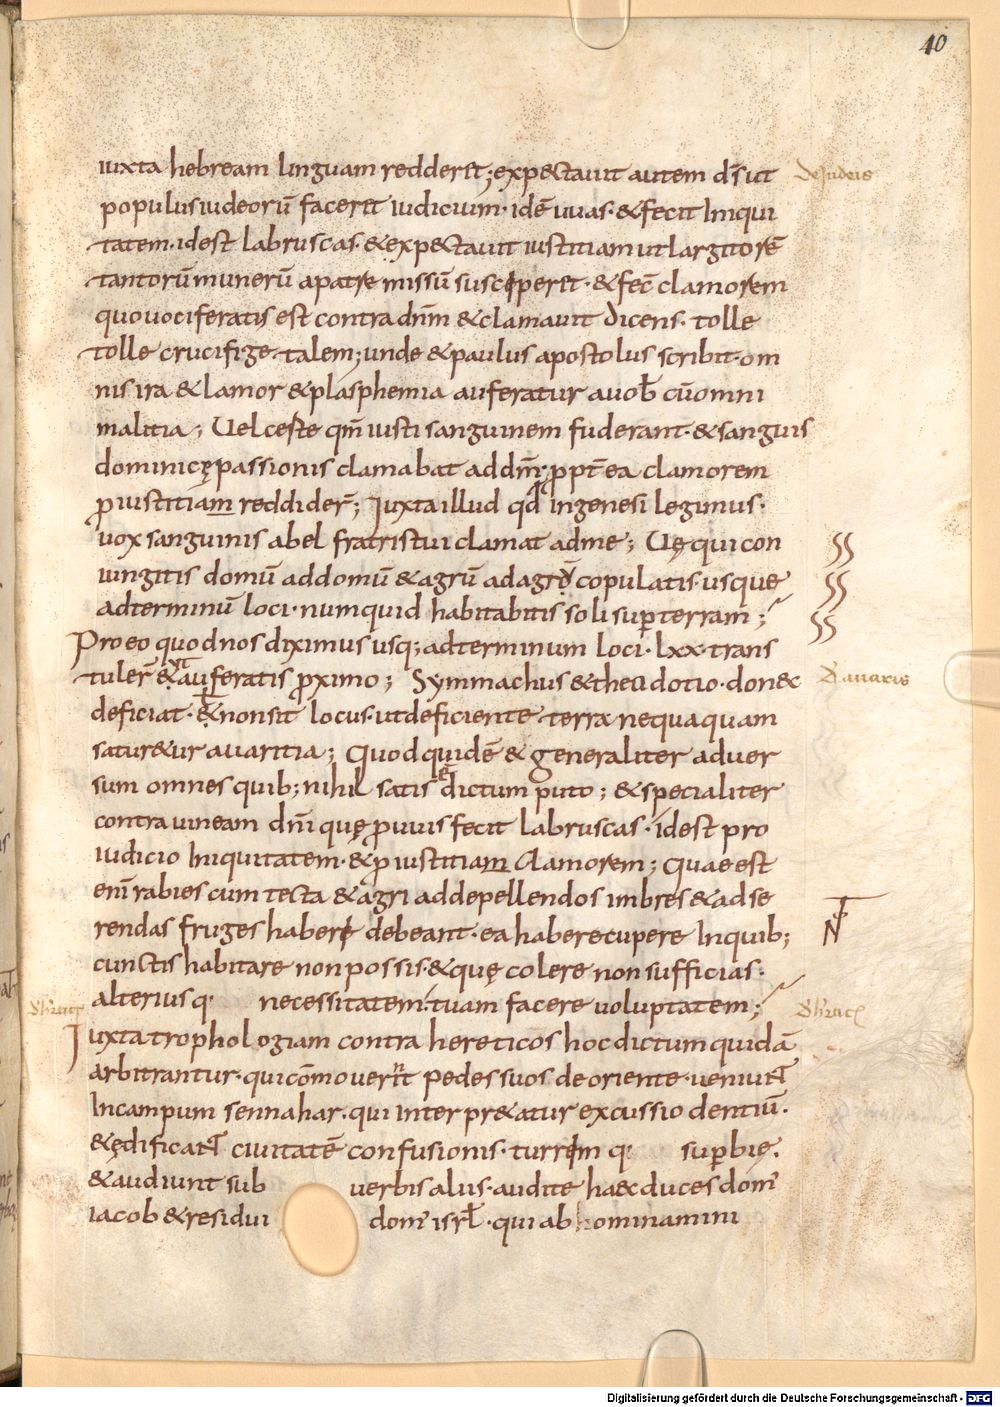 40
iuxta hebream linguam redderet; expectauit autem d̅s ut
De Judeis
populus iudeorū faceret iudicium· idē uuas· & fecit iniqui
tatem· idest labruscas· & expectauit iustitiam ut largitorē
tantorū munerū a patre missū susciperet· & fec̅ clamorem
quo uociferatis est contra dn̅m & clamauit dicens· tolle
tolle crucifige talem; unde & paulus apostolus scribit· om
nis ira & lamor & plasphemia auferatur a uob̅ cū omni
malitia; Uel ceste qm̅ iusti sanguinem fuderant· & sanguis
dominicę passionis clamabat ad dn̅m; ꝓpt̅ ea clamorem
ꝓ iustitiam reddider̅; Iuxta illud qd̅ in genesi legimus·
uox sanguinis abel fratris tui clamat ad me; Uę qui con
iungitis domū ad domū & agrū ad agrū copulatis· usque
ad terminū loci· numquid habitabitis soli sup̅ terram;
Pro eo quod nos diximus usq; ad terminum loci· lxx· trans
tuler̅ ut auferatis ꝓximo; Symmachus & theodotio· donec
D avaris
deficiat· & non sit locus· ut deficiente terra nequaquam
satur&ur auaritia; Quod quidē & generaliter aduer
sum omnes quib; nihil satis ē dictum puto; & specialiter
contra uineam dn̅i quę ꝓ uuis fecit labruscas· idest pro
iudicio iniquitatem· & ꝓ iustitiam clamorem; Quae est
eni̅ rabies cum tecta & agri ad depellendos imbres & ad se
rendas fruges habere debeant· ea habere cupere in quib;
cunctis habitare non possis· & quę colere non sufficias·
alterius q· necessitatem· tuam facere uoluptatem;
Iuxta trophologiam contra hereticos hoc dictum quidā
arbitrantur· qui cōmouer̅t pedes suos de oriente· ueniunt
In campum sennahar· qui interpr&atur excussio dentiū·
& ędificant ciuitatē confusionis· turrem q· sup̅bię·
& audiunt sub uerbis alus· audite haec duces dom'
iacob & residui dom' isrl̅· qui abhominamini
Digitalisierung gefördert durch die Deutsche Forschungsgemeinschaft - DFG